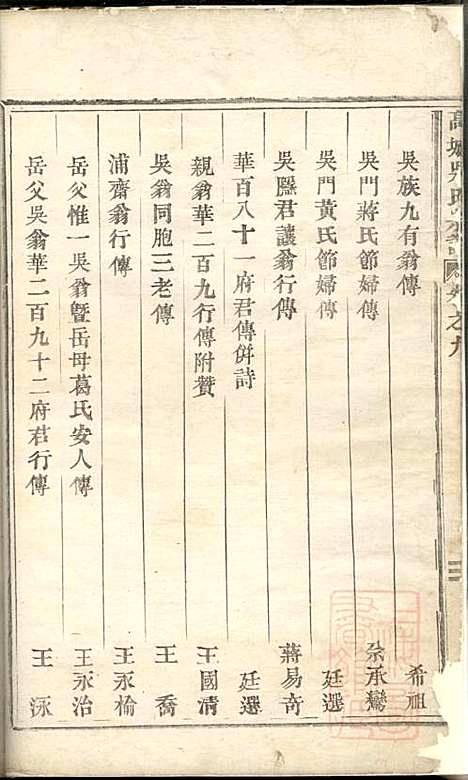 吳族九有翁傳 希祖
吳門蔣氏節婦傳 承鸞
吳門黃氏節婦傳 廷選
吳隱君讓翁行傳 蔣易奇
華百八十一府君傳併詩 廷選
親翁華二百九行傳附贊 王國清
吳翁同胞三老傳 王喬
浦齋翁行傳 王永楡
岳父惟一吳翁曁岳母葛氏安人傳 王永治
岳父吳翁華二百九十二府君行傳 王泳